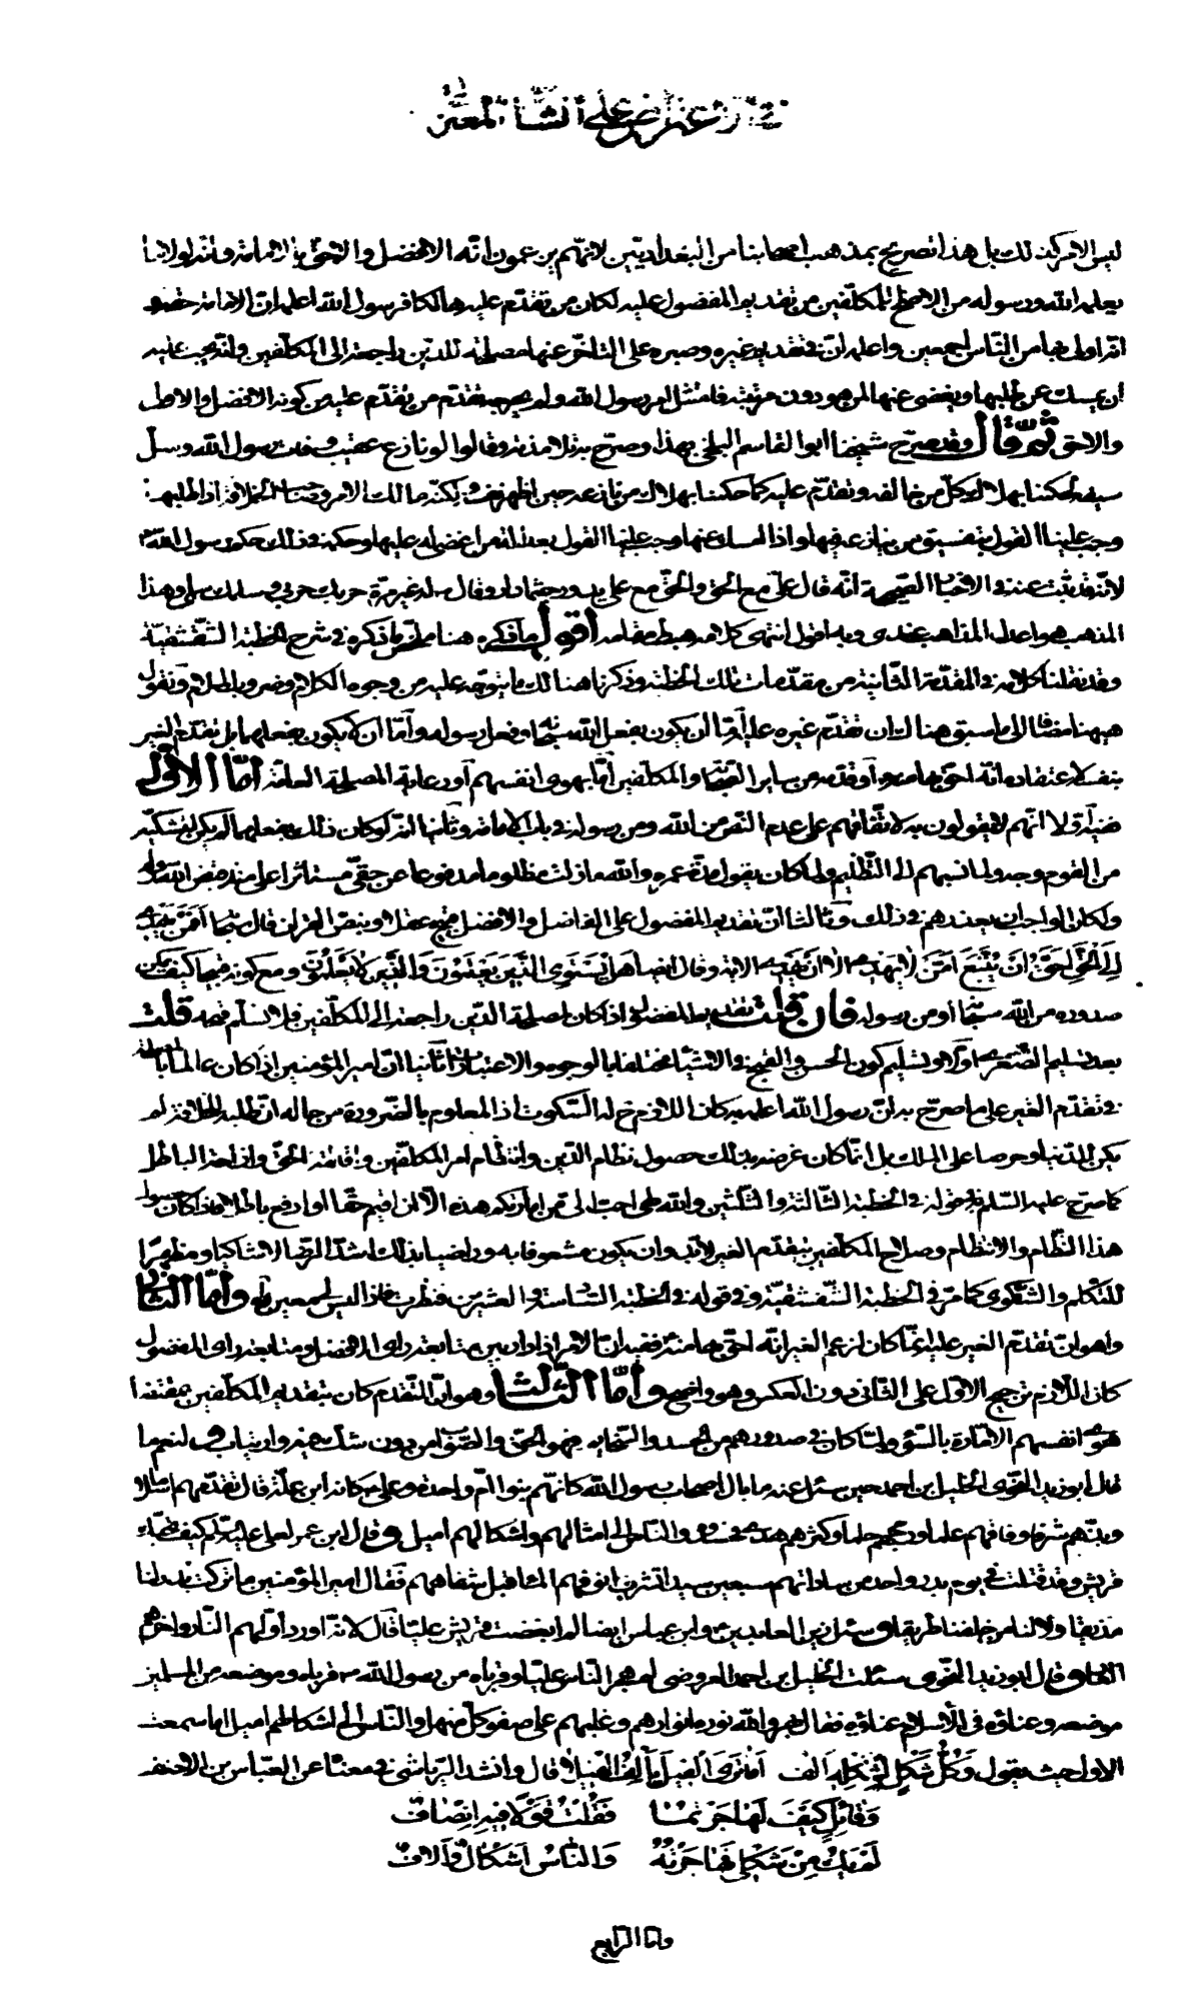 ليس الامر كذلك بل هذا تصريح بمذهب اصحابنا من البغداديين لانهم يزعمون انه الافضل والاحق بالامامة وانه لولا ما
يعلمه الله ورسوله من ان الاصلح للمكلفين من تقديم المفضول عليه لكان من تقدم عليه هالكا فرسول الله اعلمه ان الامامة حقه و
انه اولى بها من الناس اجمعين واعلمه ان في تقديم غيره وصبره على التاخر عنها مصلحة للدين راجعة الى المكلفين وانه يجب عليه
ان يمسك عن طلبها ويغضى عنها لمن هو دون مرتبته فامتثل امر رسول الله ولم يخرجه تقدم من تقدم عليه من كونه الافضل والاولى
والاحق ثم قال وقد صرح شيخنا ابو القاسم البلخى بهذا وصرح به تلامذته وقالوا لو نازع عقيب وفات رسول الله وسل
سيفه لحكمنا بهلاك كل من خالفه وتقدم عليه كما حكمنا بهلاك من نازعه حين اظهر نفسه ولكنه مالك الامر وصاحب الخلافة اذا طلبها
وجب علينا القول بتفسيق من ينازعه فيها واذا امسك عنها وجب علينا القول بعدالة من اغضى له عليها وحكمه في ذلك حكم رسول الله
لانه قد ثبت عنه في الاخبار الصحيحة انه قال على مع الحق والحق مع على يدور حيثما دار وقال له غير مرة حربك حربى وسلمك سلمى وهذا
المذهب هو اعدل المذاهب عندى وبه اقول انتهى كلامه هبط مقامه اقول ما ذكره هنا ملخص ما ذكره في شرح الخطبة الشقشقية
وقد نقلنا كلامه في المقدمة الثانية من مقدمات تلك الخطبة وذكرنا هنالك ما يتوجه عليه من وجوه الكلام وضروب الملام ونقول
هيهنا مضافا الى ما سبق هنالك ان تقدم غيره عليه اما ان يكون بفعل الله سبحانه وفعل رسوله واما ان لا يكون بفعلهما بل تقدم الغير
بنفسه لاعتقاده انه احق بها منه او قدمه من ساير الصحابة والمكلفين اما بهوى انفسهم او رعاية المصلحة العامة اما الاول
ففيه اولا انهم لا يقولون به لاتفاقهم على عدم النص من الله ومن رسوله في باب الامامة وثانيا انه لو كان ذلك بفعلهما لم يكن لتشكيه
من القوم وجه ولما نسبهم الى التظليم ولما كان يقول مدة عمره والله ما زلت مظلوما مدفوعا عن حقى مستاثرا على منذ قبض الله رسوله
ولكان الواجب ان يعذرهم في ذلك وثالثا ان تقديم المفضول على الفاضل والافضل قبيح عقلا وبنص القران قال سبحانه افمن يهدى
الى الحق احق ان يتبع امن لا يهدى الا ان يهدى الاية وقال ايضا هل يستوى الذين يعلمون والذين لا يعلمون ومع كونه قبيحا كيف يمكن
صدوره من الله سبحانه او من رسوله فان قلت تقديم المفضول اذا كان لمصلحة الدين راجعة الى المكلفين فلا نسلم قبحه قلت
بعد تسليم الصغرى اولا وتسليم كون الحسن والقبح في الاشياء مختلفا بالوجوه والاعتبار ثانيا ان امير المؤمنين اذا كان عالما بان المصلحة
في تقدم الغير على ما صرح به ان رسول الله اعلمه به كان اللازم ح له السكوت اذ المعلوم بالضرورة من حاله ان طلبه للخلافة لم
يكن للدنيا وحرصا على الملك بل انما كان غرضه بذلك حصول نظام الدين وانتظام امر المكلفين واقامة الحق وازاحة الباطل
كما صرح عليه السلام به في قوله في الخطبة الثالثة والثلثين والله لهى احب الى من امرتكم هذه الا ان اقيم حقا او ادفع باطلا فاذا كان حصول
هذا النظام والانتظام وصلاح المكلفين بتقدم الغير لابد وان يكون مشعوفا به وراضيا بذلك اشد الرضا لا شاكيا ومظهرا
للتكلم والشكوى كما مر في الخطبة الشقشقية وفي قوله في الخطبة السادسة والعشرين فنظرت فاذا ليس لى معين واما الثانى
وهو ان تقدم الغير عليه انما كان لزعم الغير انه احق بها منه ففيه ان الامر اذا دار بين متابعة راى الافضل ومتابعة راى المفضول
كان اللازم ترجيح الاول على الثانى دون العكس وهو واضح واما الثالث وهو ان التقدم كان بتقديم المكلفين بمقتضا
هوى انفسهم الامارة بالسوء ولما كان في صدورهم من الحسد والسخايم فهو الحق والصواب من دون شك فيه وارتياب ولنعم ما
قال ابو زيد النحوى الخليل بن احمد حين سئل عنه ما بال اصحاب رسول الله كانهم بنو ام واحدة وعلى كانه ابن علة قال تقدمهم اسلاما
وبذهم شرفا وفاقهم علما ورجحهم حلما وكثرهم هدى فحسدوه والناس الى امثالهم واشكالهم اميل وقال ابن عمر لعلى عليه السلام كيف تحبك
قريش وقد قتلت في يوم بدر واحد من ساداتهم سبعين سيدا تشرب انوفهم الماء قبل شفاههم فقال امير المؤمنين ما تركت بدر لنا
مذيقا ولا لنا من خلفنا طريقا وسئل زين العابدين وابن عباس ايضا لم ابغضت قريش عليا قال لانه اورد اولهم النار واخرهم
العار وقال ابو زيد النحوى سئلت الخليل بن احمد العروضى لم هجر الناس عليا وقرباه من رسول الله قرباه وموضعه من المسلمين
موضعه وعناؤه في الاسلام عناؤه فقال بهر والله نوره انوارهم وغلبهم على صفو كل منهل والناس الى اشكالهم اميل اما سمعت
الاول حيث يقول وَكُلُّ شَكْلٍ لِشَكْلِهِ اَلِفٌ اَمَا تَرَى الْفيلَ يَأْلِفُ الْفيلا قال وانشد الرياشى في معناه عن العباس بن الاحنف
وَقائِلٍ كَيْفَ تَهاجَرْتُما فَقُلْتُ قَوْلًا فيهِ اِنْصافٌ
لَمْ يَكُ مِنْ شَكْلى فَهاجَرْتُهُ وَالنّاسُ اَشْكالٌ وَاٰلافٌ
واما الرابع